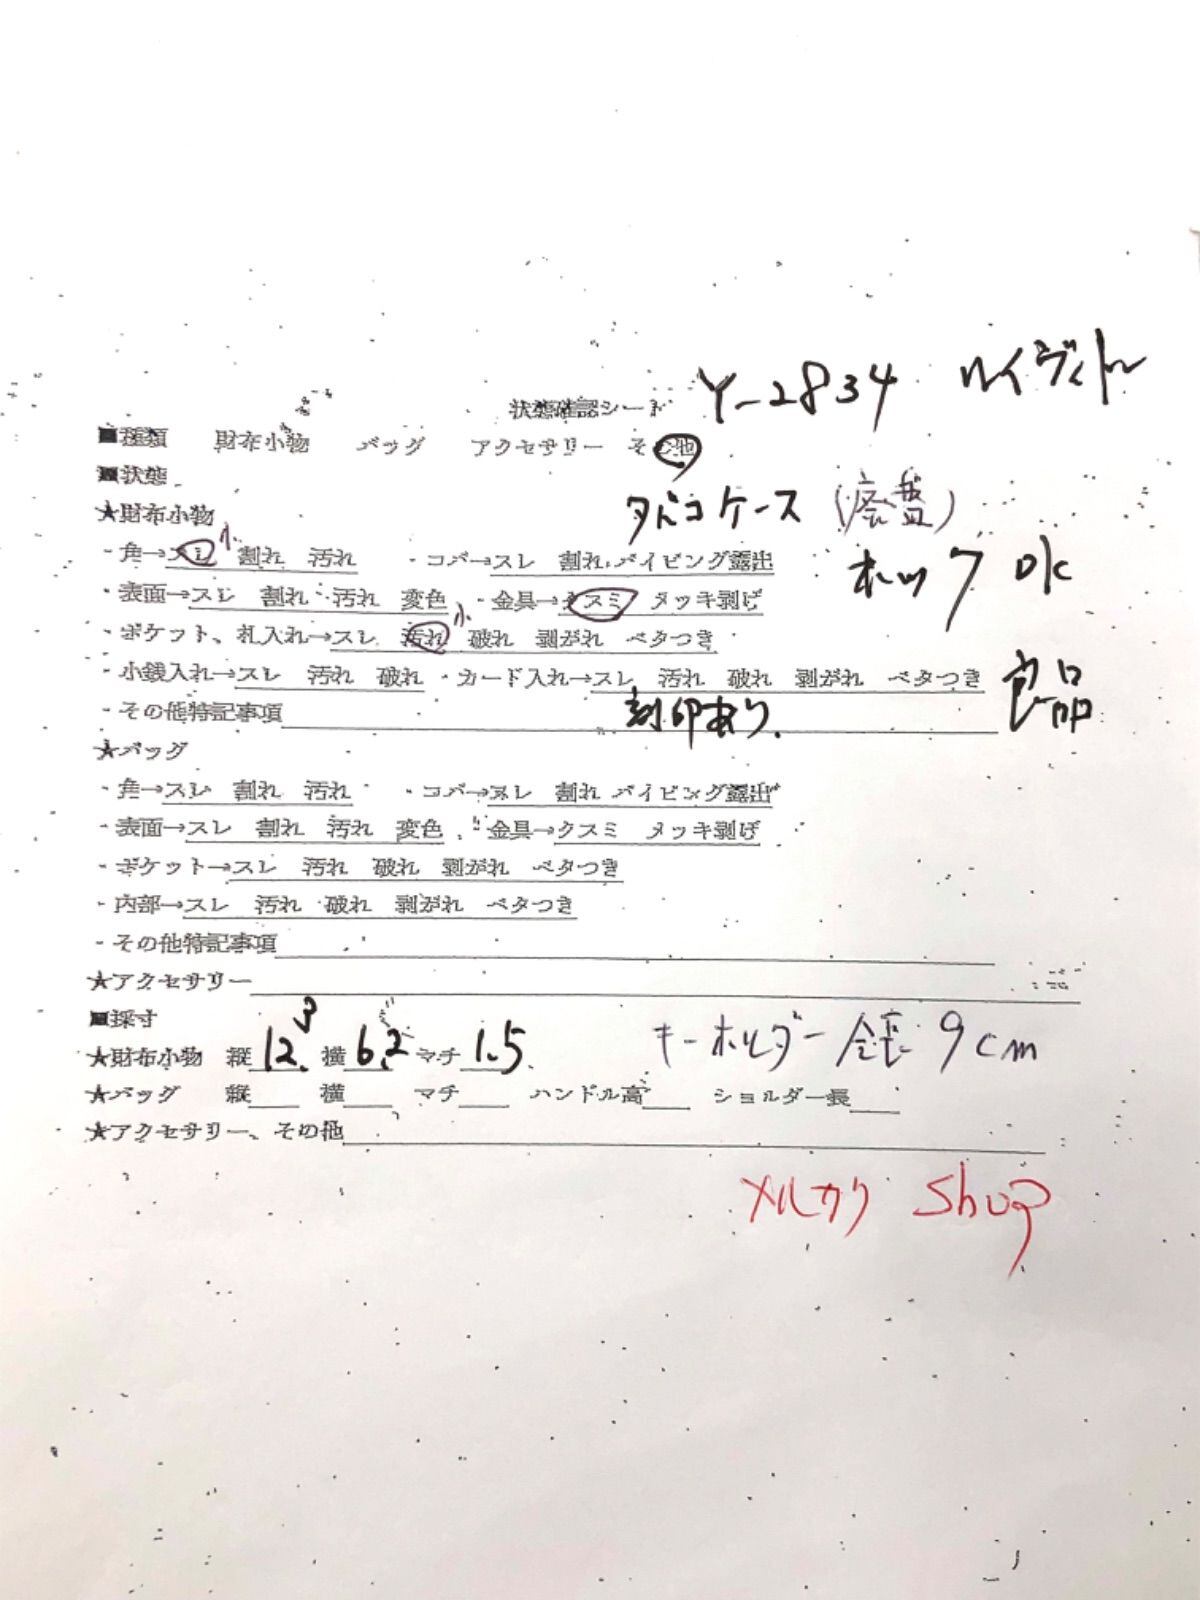 Y-2834 ルイヴィトン
状態確認シート
■種類 財布小物 バッグ アクセサリー その他
■状態
タバコケース
★財布小物
・角→スレ 小 割れ 汚れ ・コバ→スレ 割れ パイピング露出
ホック OK
・表面→スレ 割れ 汚れ 変色 ・金具→クスミ メッキ剥げ
・ポケット、札入れ→スレ 汚れ 小 破れ 剥がれ ベタつき
・小銭入れ→スレ 汚れ 破れ ・カード入れ→スレ 汚れ 破れ 剥がれ ベタつき
良品
・その他特記事項 刻印あり.
★バッグ
・角→スレ 割れ 汚れ ・コバ→スレ 割れ パイピング露出
・表面→スレ 割れ 汚れ 変色 ・金具→クスミ メッキ剥げ
・ポケット→スレ 汚れ 破れ 剥がれ ベタつき
・内部→スレ 汚れ 破れ 剥がれ ベタつき
・その他特記事項
★アクセサリー
■採寸
★財布小物 縦12.3 横6.2 マチ1.5 キーホルダー 全長 9cm
★バッグ 縦 横 マチ ハンドル高 ショルダー長
★アクセサリー、その他
メルカリ Shop